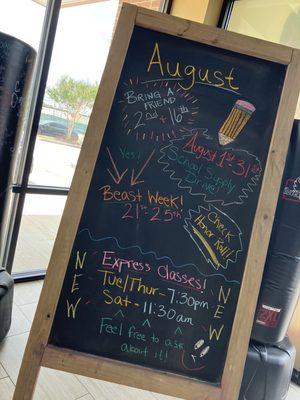 August
BRING A
FRIEND
2nd + 16th
August 1st-31st
School Supply
Drive
Yes!
Beast Week!
21st-25th
Check
Honor Roll!
Express Classes!
NEW
Tue/Thur-7:30pm
Sat-11:30am
NEW
Feel free to ask
about it!!
2XL